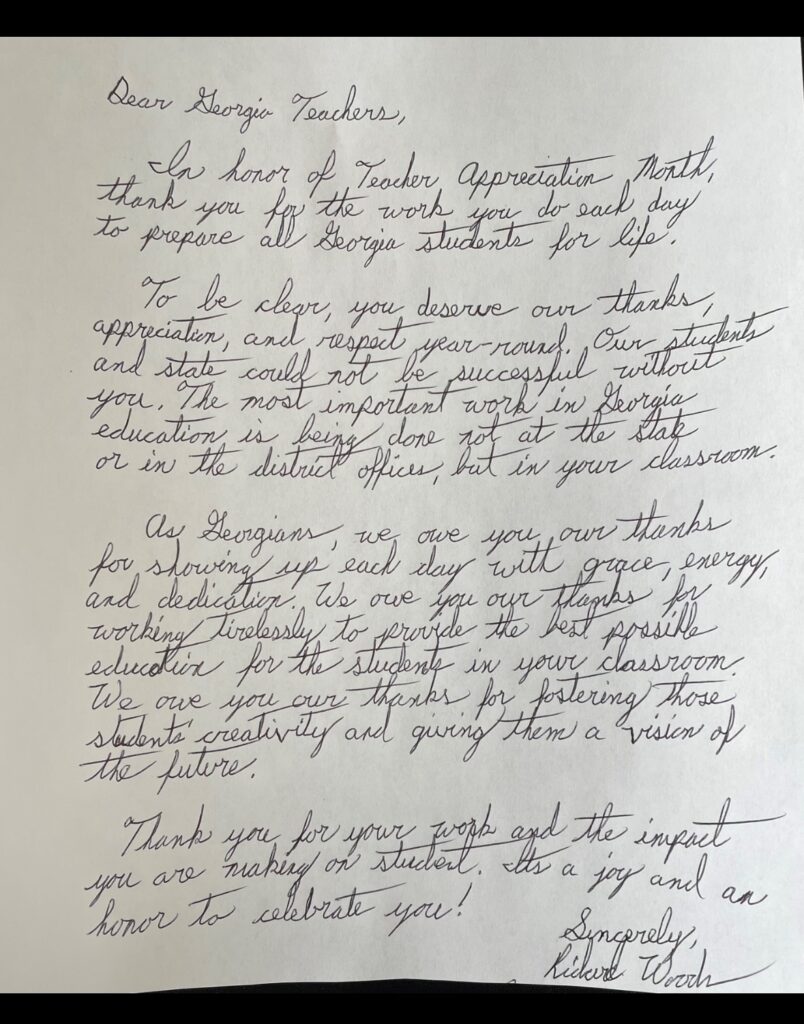 Dear Georgia Teachers,
In honor of Teacher Appreciation Month,
thank you for the work you do each day
to prepare all Georgia students for life.
To be clear, you deserve our thanks,
appreciation, and respect year-round. Our students
and state could not be successful without
you. The most important work in Georgia
education is being done not at the state
or in the district offices, but in your classroom.
As Georgians, we owe you our thanks
for showing up each day with grace, energy,
and dedication. We owe you our thanks for
working tirelessly to provide the best possible
education for the students in your classroom.
We owe you our thanks for fostering those
students' creativity and giving them a vision of
the future.
Thank you for your work and the impact
you are making on student. It's a joy and an
honor to celebrate you!
Sincerely,
Richard Woods